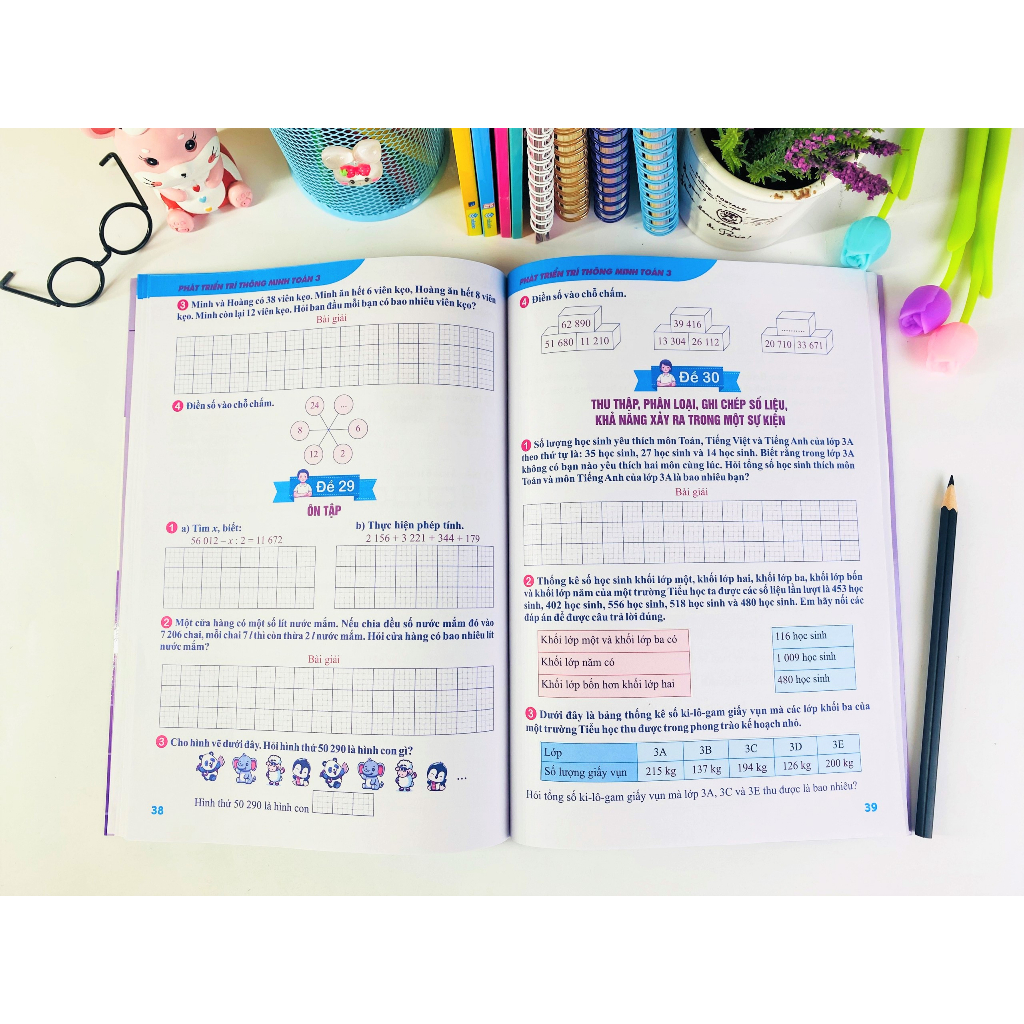 PHÁT TRIỂN TRÍ THÔNG MINH TOÁN 3
3 Minh và Hoàng có 38 viên kẹo. Minh ăn hết 6 viên kẹo, Hoàng ăn hết 8 viên
kẹo. Minh còn lại 12 viên kẹo. Hỏi ban đầu mỗi bạn có bao nhiêu viên kẹo?
Bài giải
4 Điền số vào chỗ chấm.
24 ...
8 6
12 2
Đề 29
ÔN TẬP
1 a) Tìm x, biết: b) Thực hiện phép tính.
56 012 – x : 2 = 11 672 2 156 + 3 221 + 344 + 179
2 Một cửa hàng có một số lít nước mắm. Nếu chia đều số nước mắm đó vào
7 206 chai, mỗi chai 7 l thì còn thừa 2 l nước mắm. Hỏi cửa hàng có bao nhiêu lít
nước mắm?
Bài giải
3 Cho hình vẽ dưới đây. Hỏi hình thứ 50 290 là hình con gì?
...
Hình thứ 50 290 là hình con
38
PHÁT TRIỂN TRÍ THÔNG MINH TOÁN 3
4 Điền số vào chỗ chấm.
62 890 39 416 ............
51 680 11 210 13 304 26 112 20 710 33 671
Đề 30
THU THẬP, PHÂN LOẠI, GHI CHÉP SỐ LIỆU,
KHẢ NĂNG XẢY RA TRONG MỘT SỰ KIỆN
1 Số lượng học sinh yêu thích môn Toán, Tiếng Việt và Tiếng Anh của lớp 3A
theo thứ tự là: 35 học sinh, 27 học sinh và 14 học sinh. Biết rằng trong lớp 3A
không có bạn nào yêu thích hai môn cùng lúc. Hỏi tổng số học sinh thích môn
Toán và môn Tiếng Anh của lớp 3A là bao nhiêu bạn?
Bài giải
2 Thống kê số học sinh khối lớp một, khối lớp hai, khối lớp ba, khối lớp bốn
và khối lớp năm của một trường Tiểu học ta được các số liệu lần lượt là 453 học
sinh, 402 học sinh, 556 học sinh, 518 học sinh và 480 học sinh. Em hãy nối các
đáp án để được câu trả lời đúng.
Khối lớp một và khối lớp ba có 116 học sinh
Khối lớp năm có 1 009 học sinh
Khối lớp bốn hơn khối lớp hai 480 học sinh
3 Dưới đây là bảng thống kê số ki-lô-gam giấy vụn mà các lớp khối ba của
một trường Tiểu học thu được trong phong trào kế hoạch nhỏ.
Lớp 3A 3B 3C 3D 3E
Số lượng giấy vụn 215 kg 137 kg 194 kg 126 kg 200 kg
Hỏi tổng số ki-lô-gam giấy vụn mà lớp 3A, 3C và 3E thu được là bao nhiêu?
39